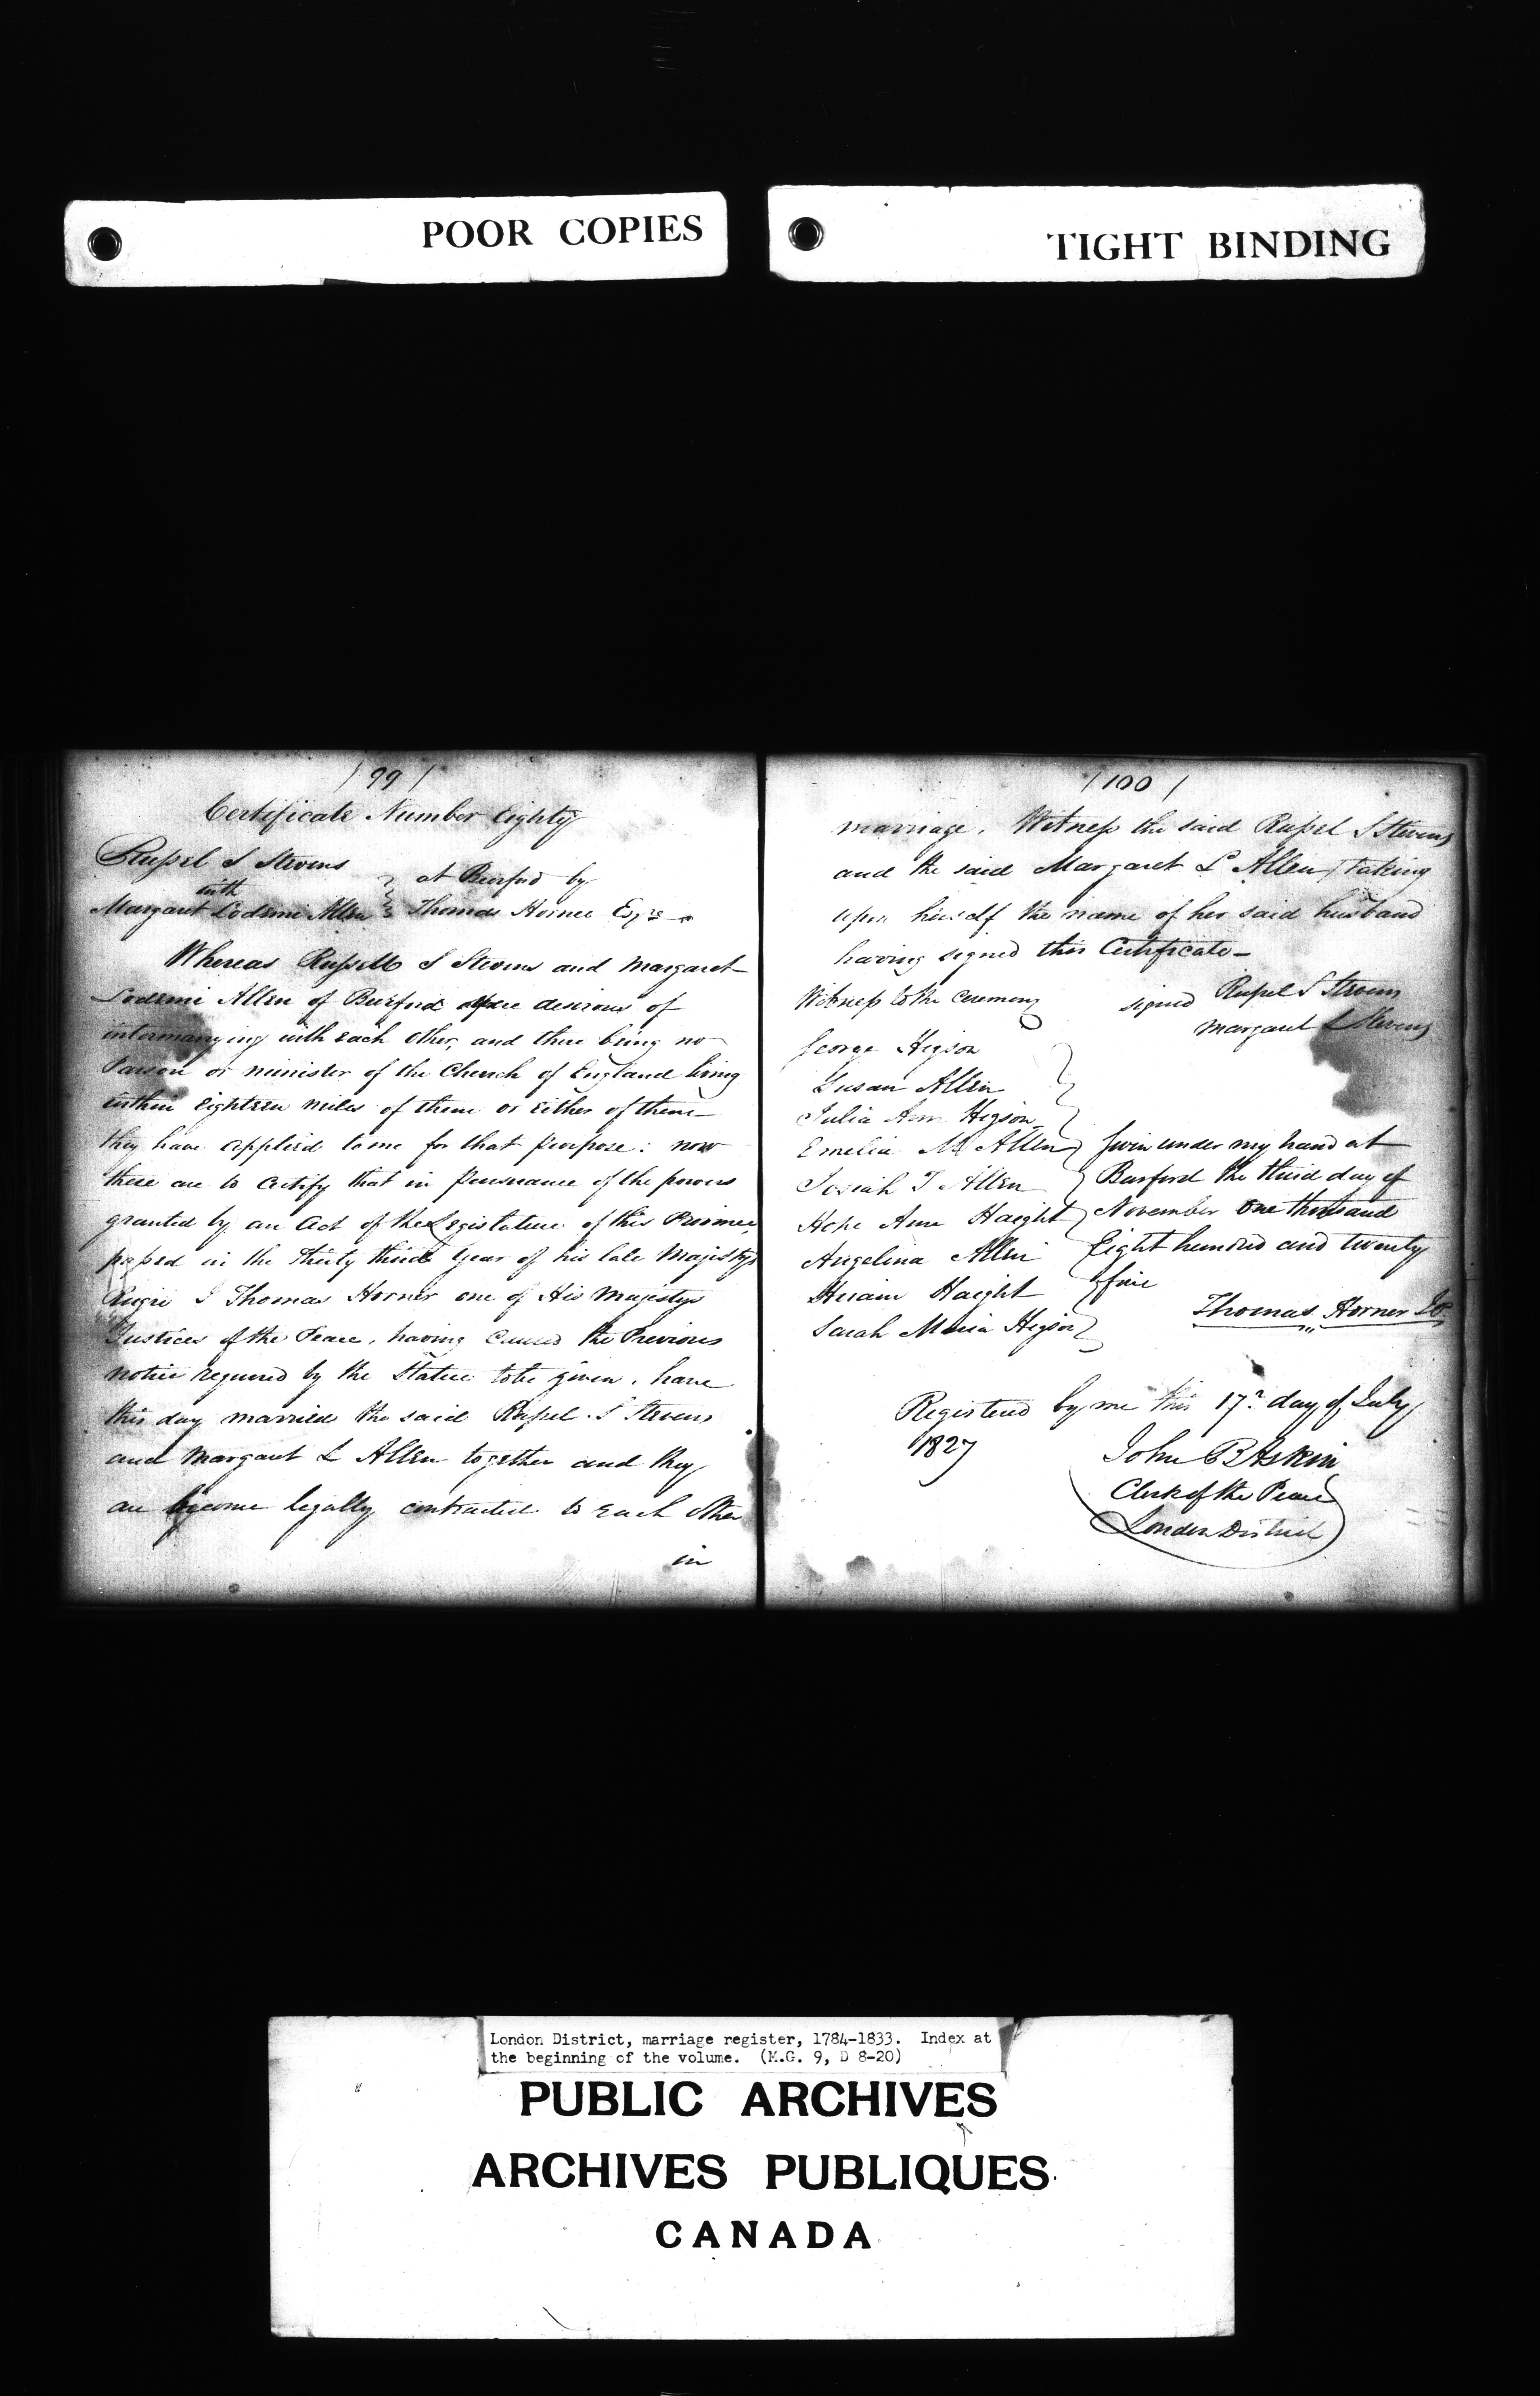 POOR COPIES
TIGHT BINDING
/ 99 /
Certificate Number Eighty
Russel S Stevens
with
Margaret Lodemi Allen
at Burford by
Thomas Horner Esqre
Whereas Russell S Stevens and Margaret
Lodemi Allen of Burford are desirous of
intermarrying with each other, and there being no
Parson or minister of the Church of England living
within Eighteen miles of them or Either of them
they have applied to me for that purpose: now
these are to Certify that in pursuance of the powers
granted by an Act of the Legislature of this Province,
passed in the thirty third year of his late Majestys
Reign I Thomas Horner one of His Majestys
Justices of the Peace, having Caused the Previous
notice required by the Statue to be given, have
this day married the said Russel S Stevens
and Margaret L Allen together and they
are become legally contracted to Each Other
in
/ 100 /
marriage. Witness the said Russel S Stevens
and the said Margaret L Allen (taking
upon hirself the name of her said husband
having signed this Certificate
Witness to the Ceremony
signed Russel S Stevens
Margaret L Stevens
George Higson
Susan Allen
Julia Ann Higson
Emelia M Allen
Josiah T Allen
Hope Ann Haight
Angelina Allen
Hiram Haight
Sarah Maria Higson
Givin under my hand at
Burford the third day of
November One thousand
Eight hundred and twenty
five
Thomas Horner
Registered by me this 17th day of July
1827
John B Askin
Clerk of the Peace
London District
London District, marriage register, 1784-1833. Index at
the beginning of the volume. (M.G. 9, D 8-20)
PUBLIC ARCHIVES
ARCHIVES PUBLIQUES
CANADA